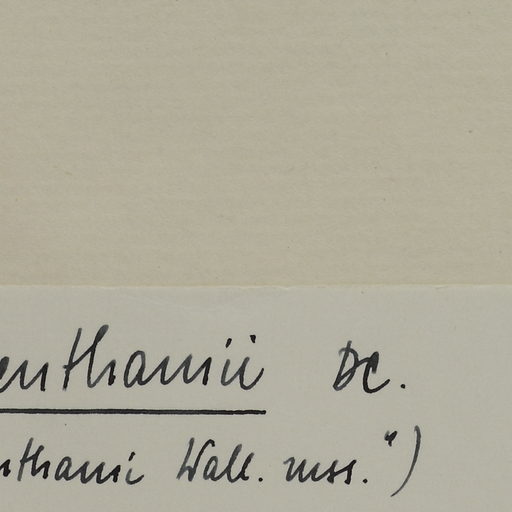 enthamii DC.
nthami Wall. mss.")